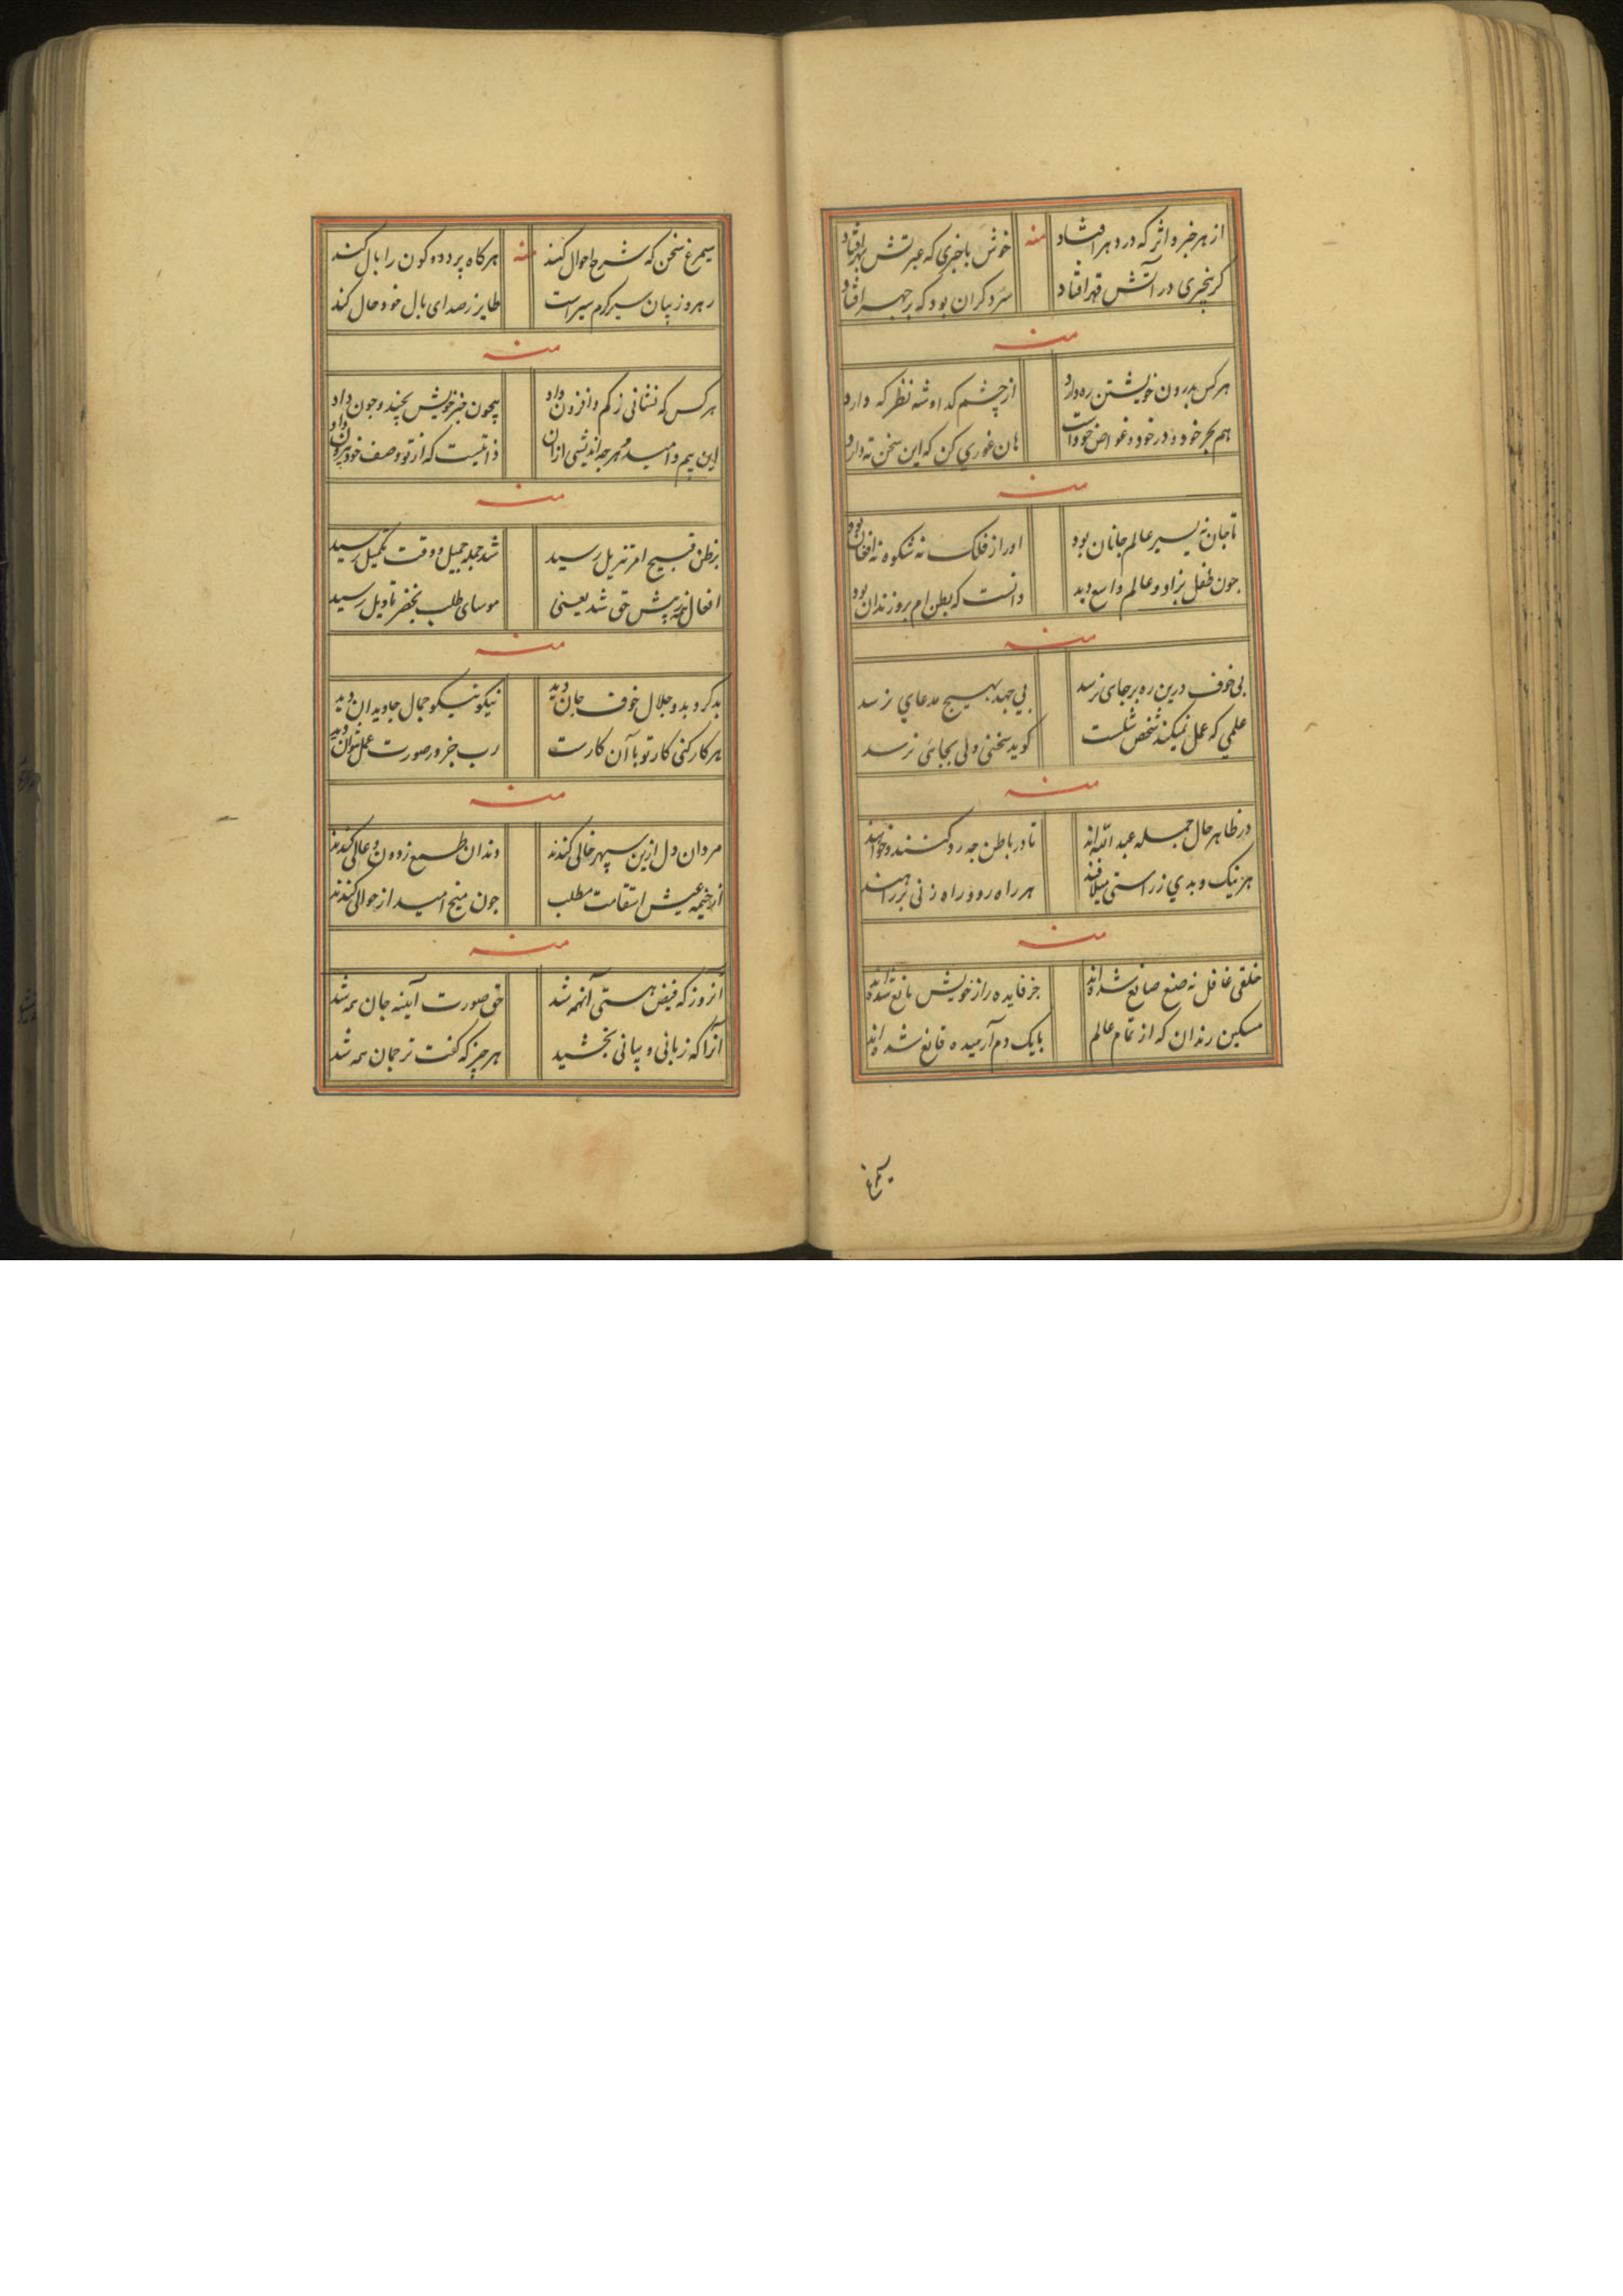 از هر خبر و اثر که در دهر افتاد منه خوش باخبری که عبرتش بهر افتاد
کر بیخبری در آتش قهر افتاد سر د کران بود که بر جهر افتاد
منه
هر کس بدرون خویشتن ره دارد از چشم کدا و شه نظر که دارد
هم بحر خود و در خود و غواص خود است هان غوری کن که این سخن ته دارد
منه
تا جان نه بسیر عالم جانان بود او را ز فلک نه شکوه نه افغان بود
چون طفل بزاد و عالم واسع دید دانست که بطن ام برو زندان بود
منه
بی خوف درین ره بر جای نرسد بی جهد بهیچ مدعای نرسد
علمی که عمل نمیکند شخص شلست کوید سخنی ولی بجائی نرسد
منه
در ظاهر حال جمله عبد الله اند تا در باطن چه رد کنند و خواهند
هر نیک و بدی ز راستی میلافند هر راه رو و راه زنی بر راهند
منه
خلقی غافل نه صنع صانع شده اند جز فایده راز خویش مانع شده اند
مسکین رندان که از تمام عالم بایک دم آرمیده قانع شده اند
سیمرغ
سیمرغ سخن که شرح احوال کند منه هر کاه پرد دو کون را بال کند
رهرو ز بیان سیر کرم سیر است طایر ز صدای بال خود حال کند
منه
هر کس که نشانی ز کم و افزون داد بیچون خبر خویش بچند و چون داد
این بیم و امید و هر چه اندیشی ازان ذاتیست که از تو وصف خود بیرون داد
منه
بر ظن قبیح امر تنزیل رسید شد جمله جمیل و وقت تکمیل رسید
افعال همه پیش حق شد یعنی موسای طلب بخضر تاویل رسید
منه
بد کرد بد و جلال خوف جان دید نیکو نیکو جمال جاویدان دید
هر کار کنی کار تو با آن کارست رب جز در صورت عمل نتوان دید
منه
مردان دل ازین سپهر خالی کندند دندان طمع ز دون و عالی کندند
از خیمه عیش استقامت مطلب چون میخ امید از حوالی کندند
منه
آنروز که فیض هستی آنهمه شد حق صورت آینه جان همه شد
آنرا که زبانی و بیانی بخشید هر چیز که کفت ترجمان همه شد